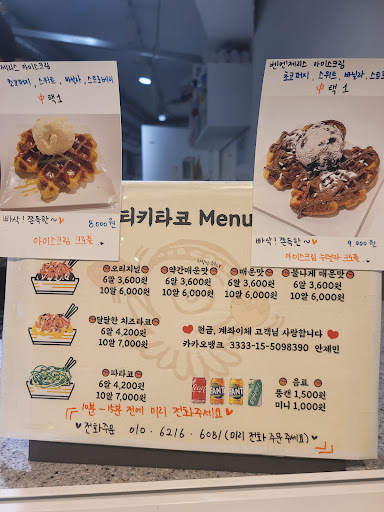 제리스 아이스크림
초코퍼지, 스위트, 바닐라, 스트로베리
中 택1
빠삭! 쫀득한~♥
8,000원
아이스크림 크로플
벤엔제리스 아이스크림
초코퍼지, 스위트, 바닐라, 스트로
中 택 1
빠삭! 쫀득한~♥
9,000원
아이스크림 누텔라 크로플
티키타코 Menu
오리지널
6알 3,600원
10알 6,000원
약간매운맛
6알 3,600원
10알 6,000원
매운맛
6알 3,600원
10알 6,000원
불나게 매운맛
6알 3,600원
10알 6,000원
달달한 치즈타코
6알 4,200원
10알 7,000원
♥ 현금, 계좌이체 고객님 사랑합니다 ♥
카카오뱅크 3333-15-5098390 안제민
파타코
6알 4,200원
10알 7,000원
음료
뚱캔 1,500원
미니 1,000원
10분~15분 전에 미리 전화주세요 ♥
♥ 전화주문 010.6216.6081 (미리 전화 주문 주세요) ♥